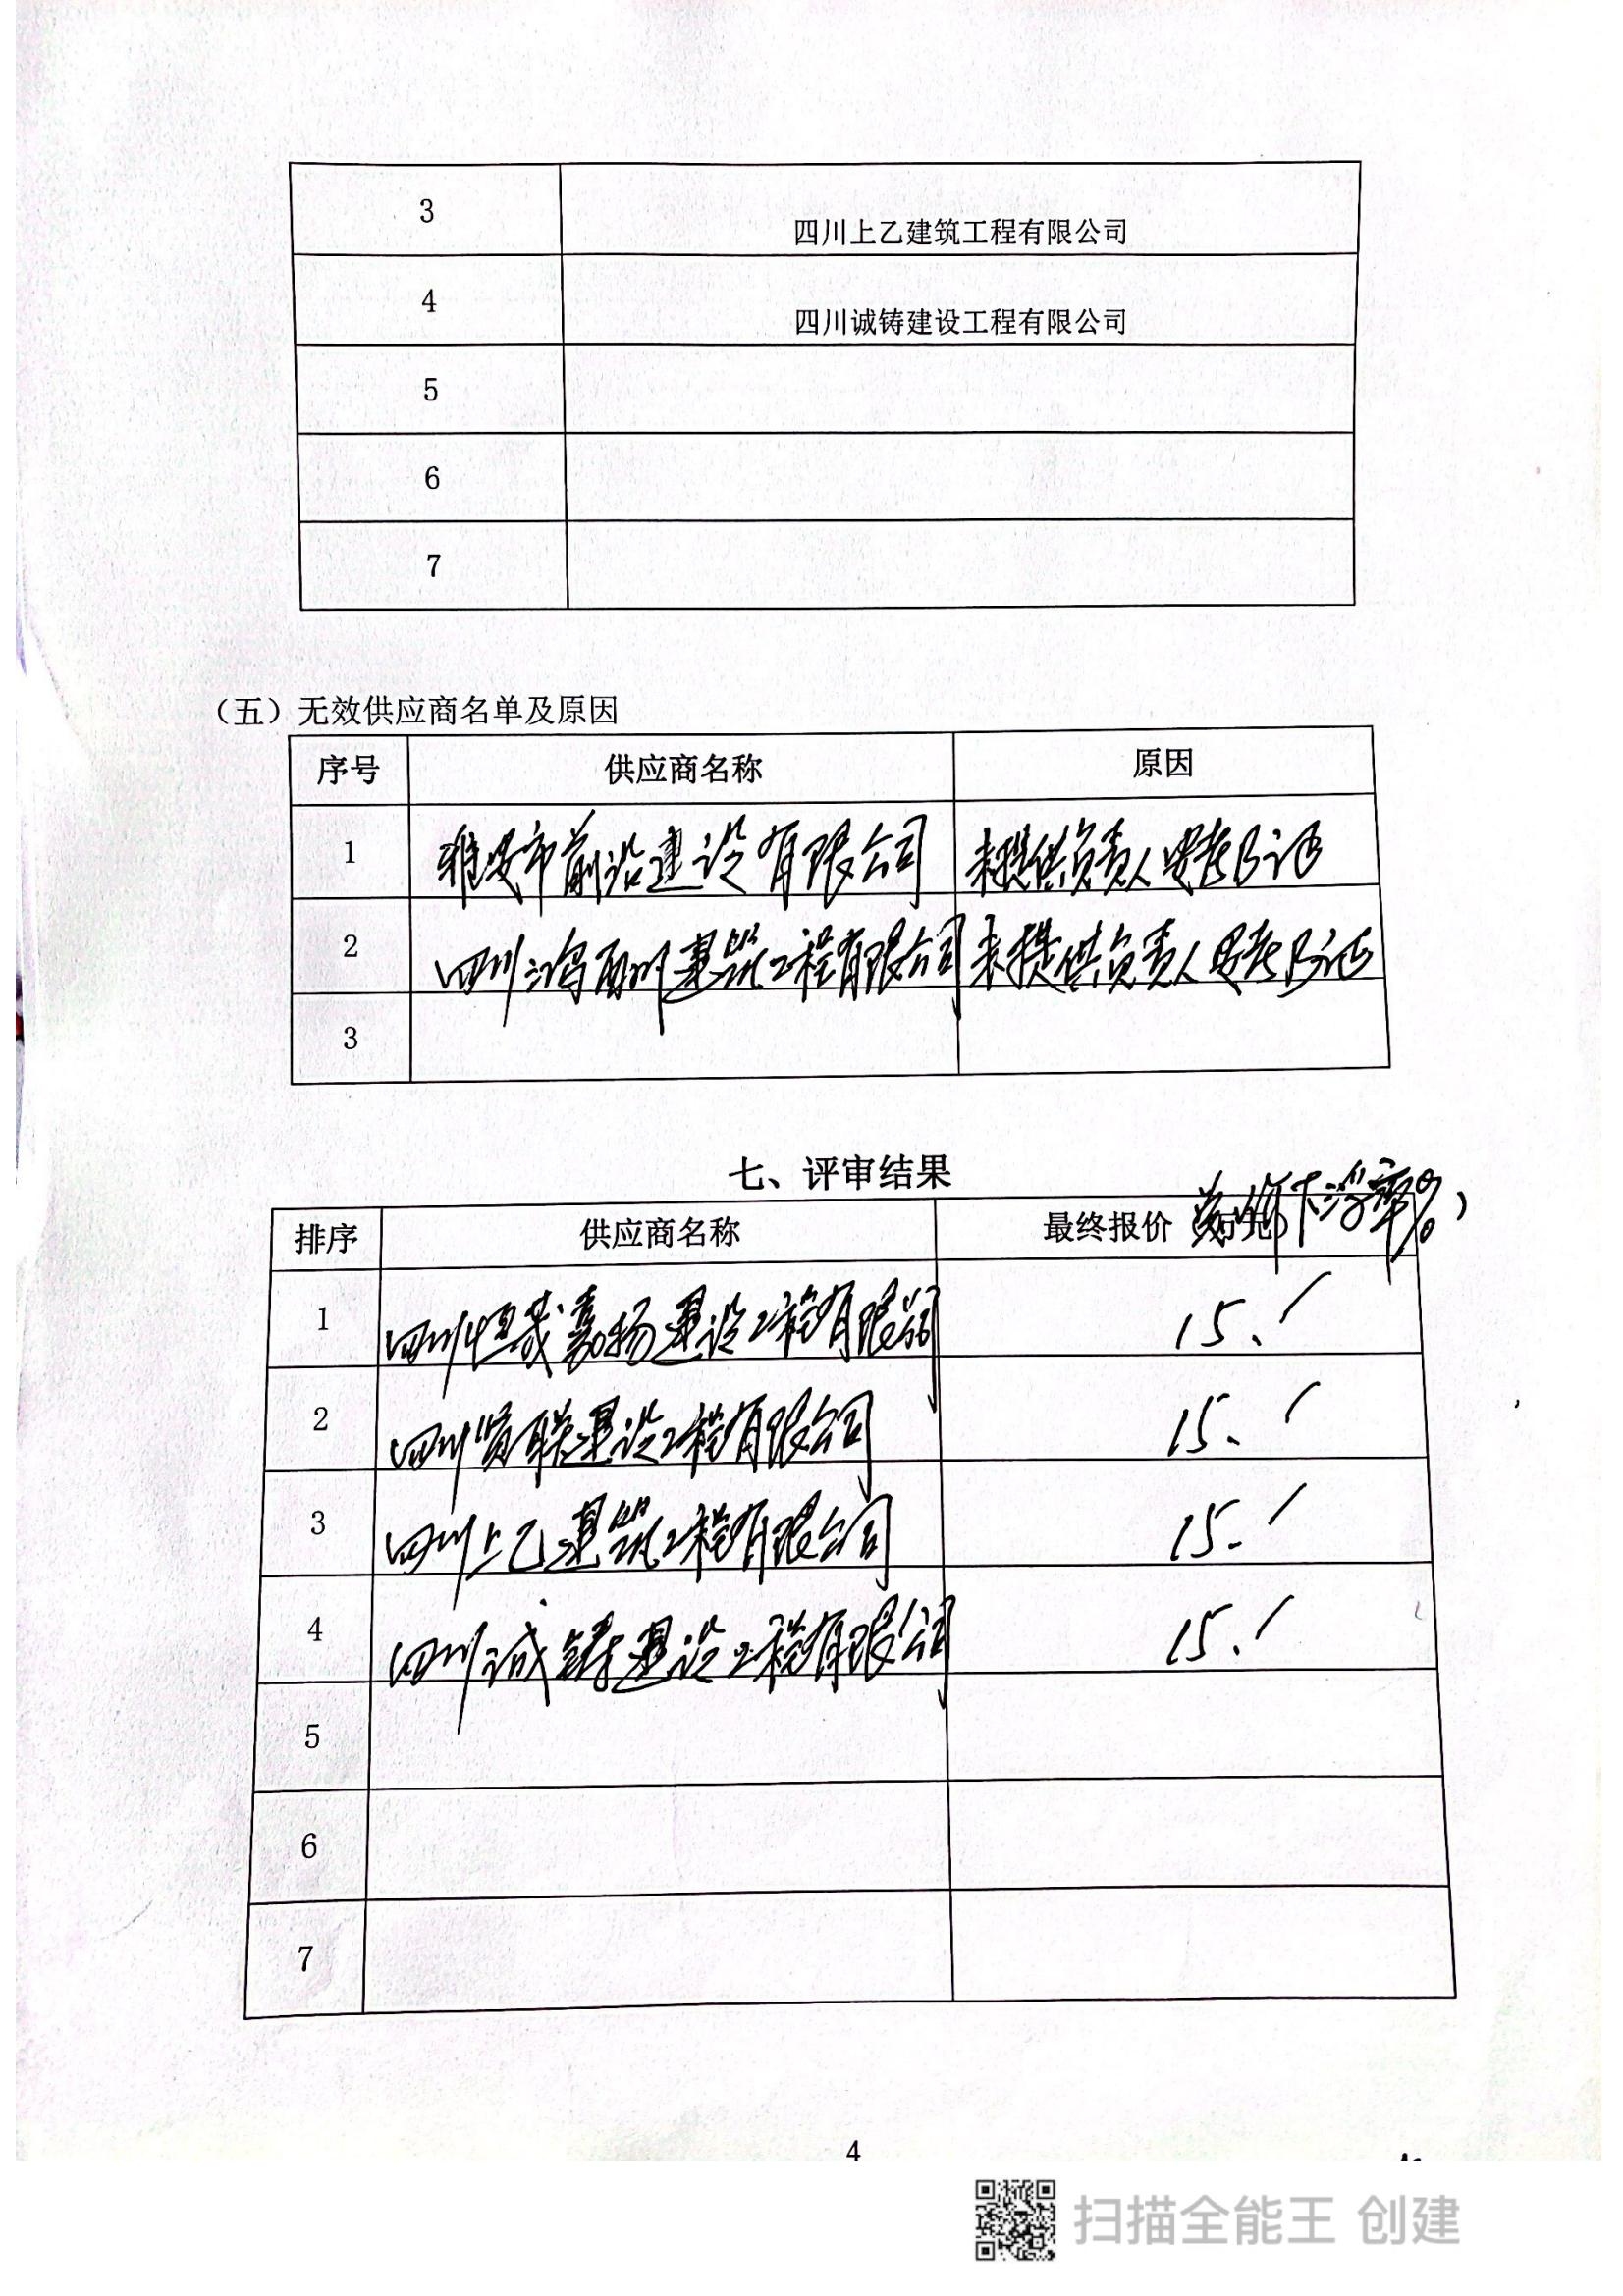 3 四川上乙建筑工程有限公司
4 四川诚铸建设工程有限公司
5
6
7
（五）无效供应商名单及原因
序号 供应商名称 原因
1 雅安市前沿建设有限公司 未提供负责人安考B证
2 四川鸿 建筑工程有限公司 未提供负责人安考B证
3
七、评审结果
排序 供应商名称 最终报价 下浮率%）
1 四川恒茂嘉扬建设工程有限公司 15.1
2 四川 联建设工程有限公司 15.
3 四川上乙建筑工程有限公司 15.
4 四川诚铸建设工程有限公司 15.1
5
6
7
4
扫描全能王 创建